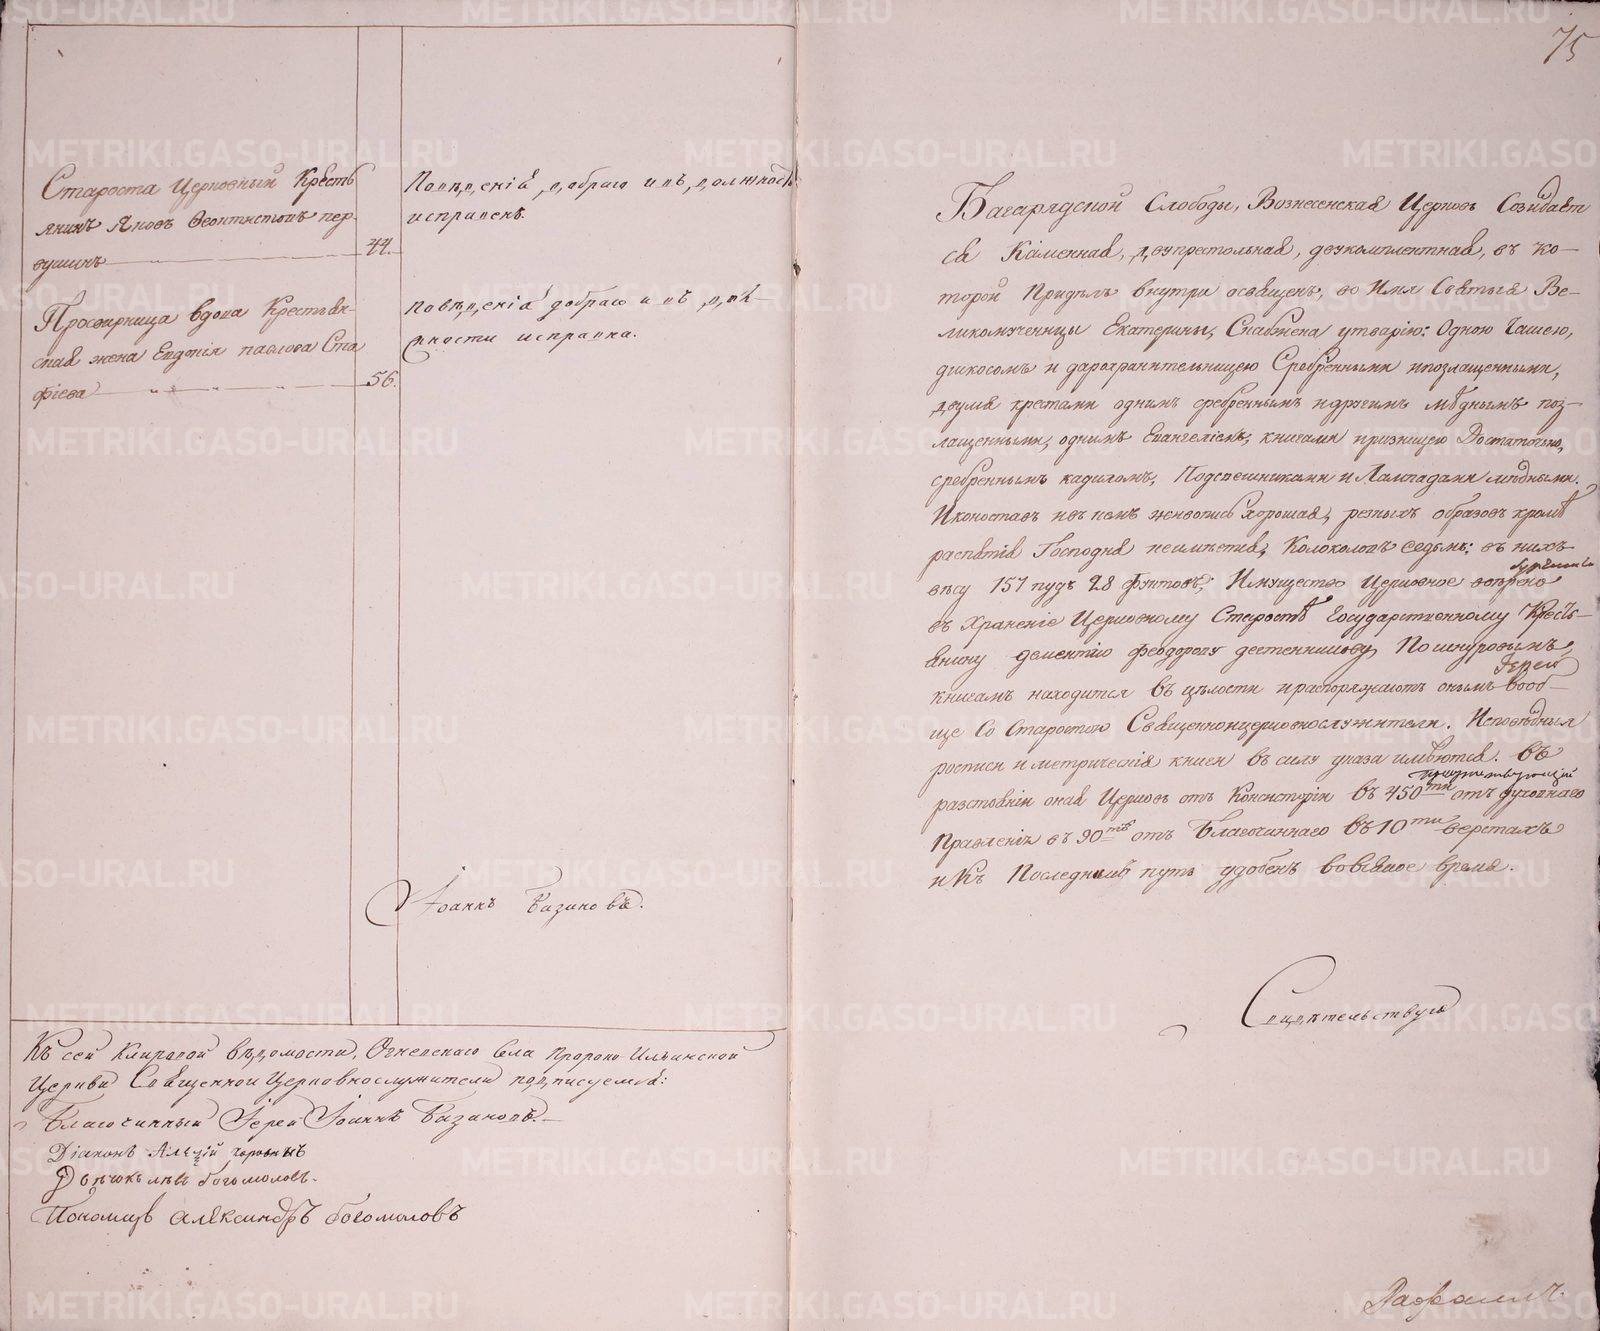 Староста Церковный Кресть
янинъ Яковъ Феоктистовъ пер
вушинъ
44.
Поведенія добраго и въ должность
исправенъ.
Просвирница вдова Крестьян-
ская жена Евдокія павлова Ста
фіева
56.
Поведенія добраго и въ дол-
жности исправна.
Іоаннъ Базиновъ.
Къ сей Клировой вѣдомости, Огневскаго Села Пророко-Ильинской
Церкви Священно и Церковнослужители подписуемся:
Благочинный Іерей Іоаннъ Базановъ.
Діаконъ
Дьячокъ богомоловъ.
Пономарь Александръ богомоловъ
75
Багарядской Слободы, Вознесенская Церковь Созидает
ся Каменная, двупрестольная, двукомплектная, въ ко-
торой Придѣлъ внутри освященъ, во Имя Святыя Ве-
ликомученицы Екатерины, Снабжена утварію: Одною Чашею,
дискосомъ и дарохранительницею Сребренными и позлащенными,
двумя крестами однимъ сребреннымъ и другимъ мѣднымъ поз-
лащенными, однимъ Евангеліемъ, книгами и ризницею Достаточно,
сребреннымъ кадиломъ, Подсвешниками и Лампадами мѣдными.
Иконостасъ и въ немъ живопись хорошая, резныхъ образовъ кромѣ
распятія Господня неимѣется, Колоколовъ седьмь: въ нихъ
вѣсу 157 пудъ 28 Фунтовъ; Имущество Церковное ввѣрено
въ Храненіе Церковному Старостѣ Государственному Кресть-
янину дементію Феодорову Пошнуровымъ
Іерей
книгамъ находится въ цѣлости и распоряжаютъ онымъ вооб-
ще Со Старостою Священноицерковнослужители. Исповѣдныя
росписи и метрическія книги въ силу указа имѣются. въ
разстояніи оная Церковь отъ Консисторіи въ 450 ти отъ духовнаго
Правленія въ 90 тѣ отъ Благочиннаго въ 10 ти верстахъ
и къ Последнимъ путь удобенъ во всякое время.
Свидѣтельствуя
METRIKI.GASO-URAL.RU